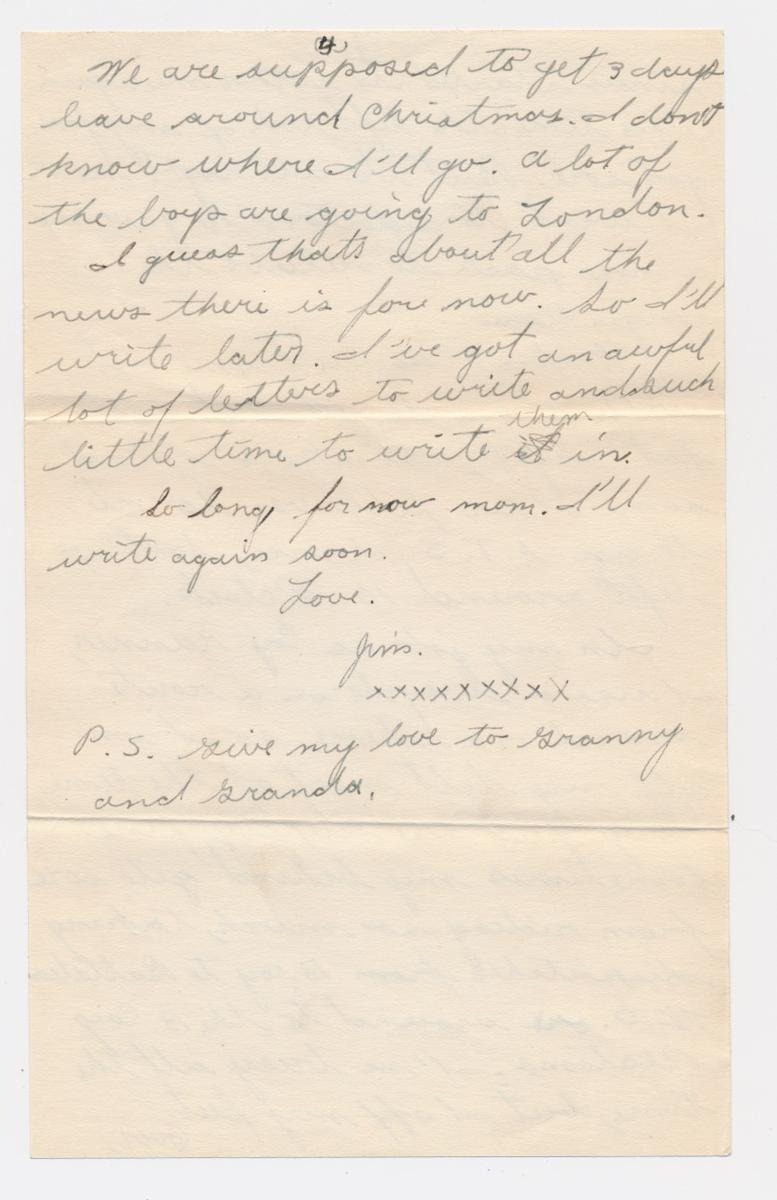 (4)
We are supposed to get 3 days
leave around Christmas. I don't
know where I'll go. A lot of
the boys are going to London.
I guess thats about all the
news there is fore now. So I'll
write later. I've got an awful
lot of letters to write and such
them
little time to write in.
So long for now mom. I'll
write again soon.
Love.
Jim.
xxxxxxxxxx
P.S. Give my love to Granny
and Granda.